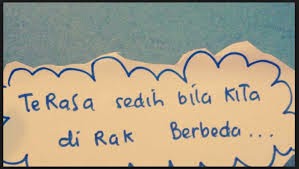 TeRaSa sedih bila KiTa
di Rak Berbeda...